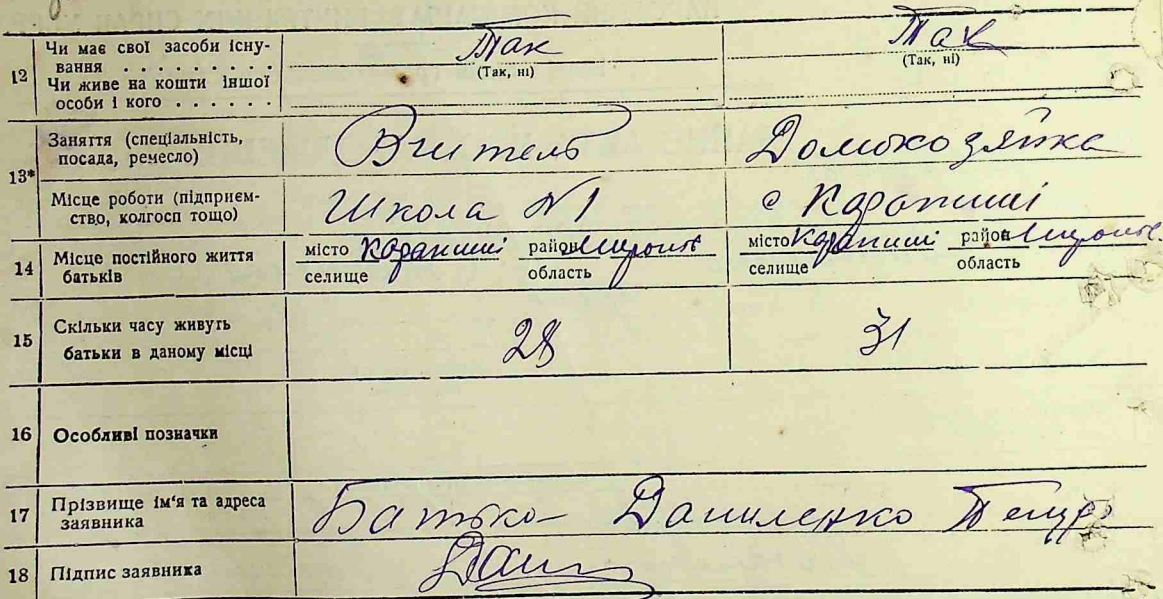 12 Чи має свої засоби існу-
вання . . . . . . . . .
Чи живе на кошти іншої
особи і кого . . . . . .
Так
(Так, ні)
Так
(Так, ні)
13* Заняття (спеціальність,
посада, ремесло)
Вчитель
Домохозяйка
Місце роботи (підприєм-
ство, колгосп тощо)
Школа №1
с Карапиші
14 Місце постійного життя
батьків
місто Карапиші район
селище область
місто Карапиші район
селище область
15 Скільки часу живуть
батьки в даному місці
28
31
16 Особливі позначки
17 Прізвище ім'я та адреса
заявника
Батько- Даниленко Петро
18 Підпис заявника